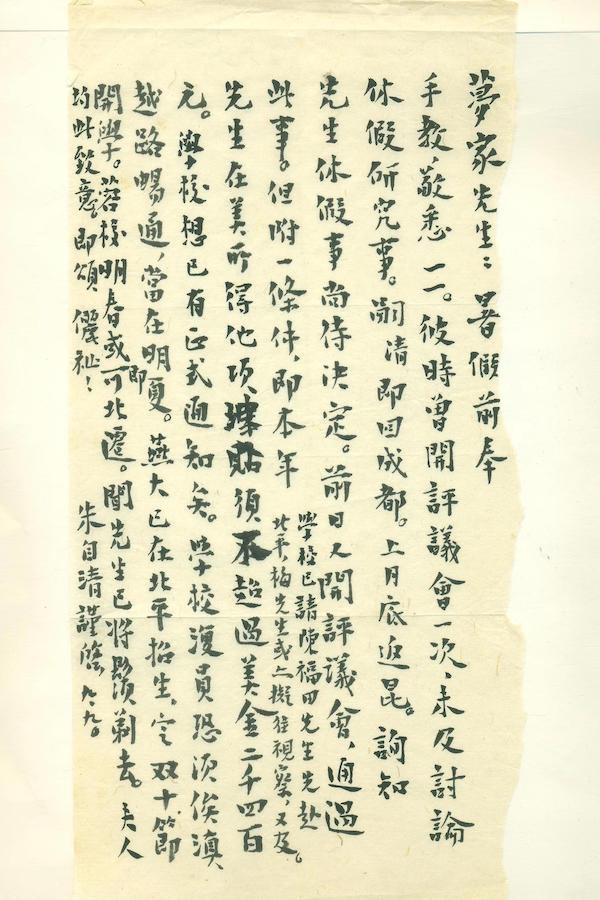 夢家先生：暑假前奉
手教，敬悉一一。彼時曾開評議會一次，未及討論
休假研究事。嗣清即回成都。上月底返昆。詢知
先生休假事尚待決定。前日又開評議會，通過
此事。但附一條件，即本年
學校已請陳福田先生先赴
北平，梅先生或亦擬往視察，又及。
先生在美所得他項津貼須不超過美金二千四百
元。學校想已有正式通知矣。學校復員恐須俟滇
越路暢通，當在明夏。燕大已在北平招生，定双十節
即
開學。蓉校明春或可北遷。聞先生已將鬍鬚剃去。夫人
均此致意，即頌 儷祉！
朱自清謹啓 九，九。